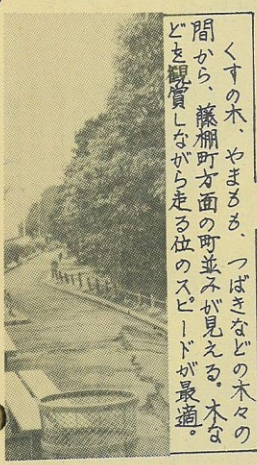 くすの木、やまもも、つばきなどの木々の
間から、藤棚町方面の町並みが見える。木な
どを観賞しながら走る位のスピードが最適。